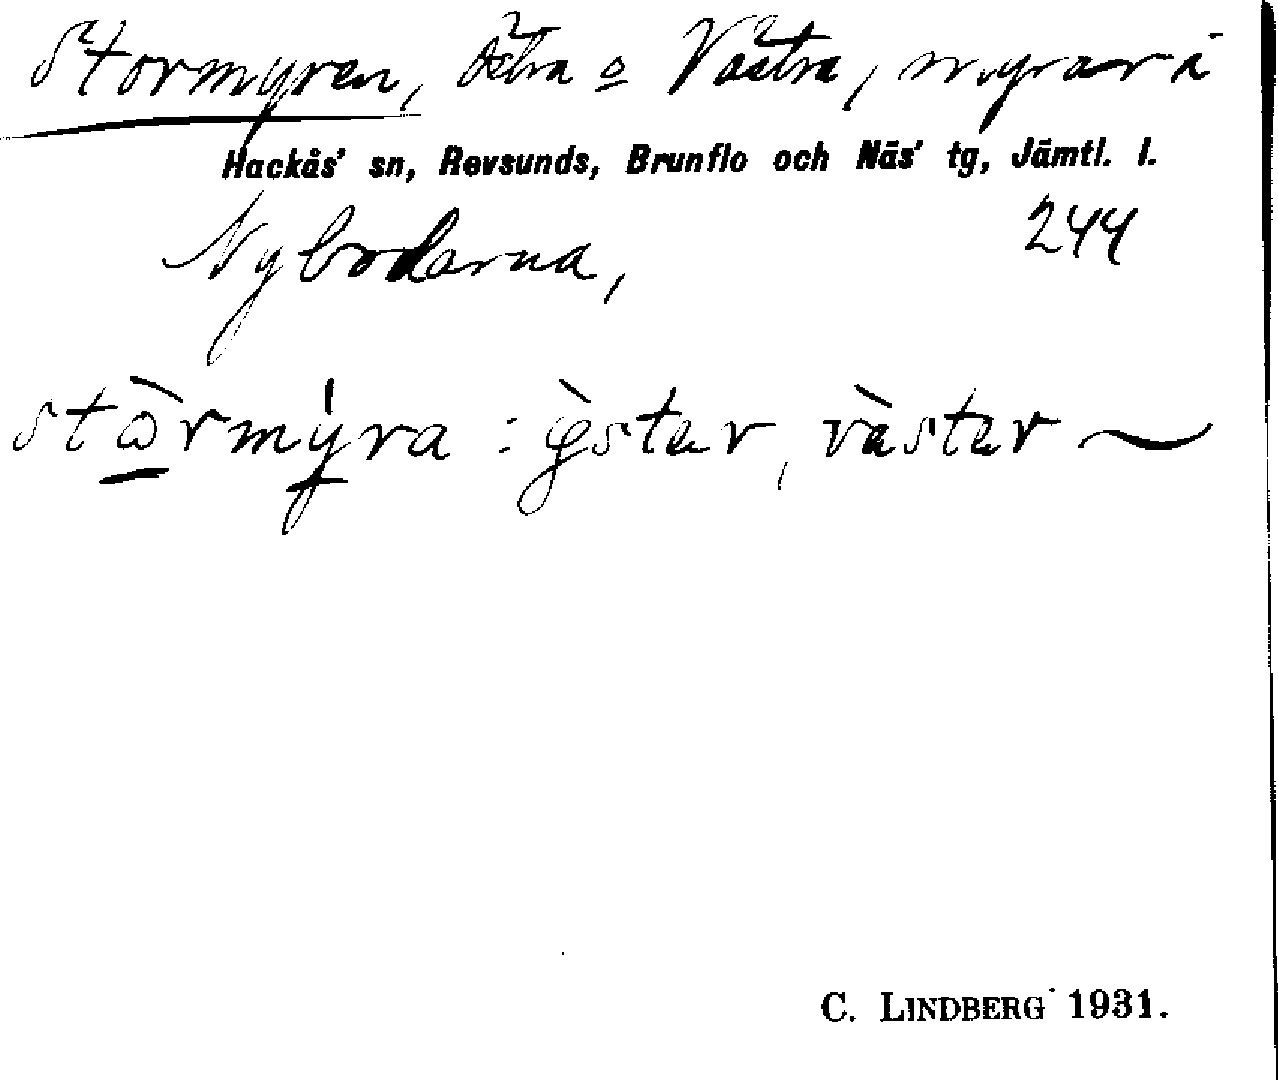 Stormyren, Östra o Västra, myrar i
Hackås' sn, Revsunds, Brunflo och Näs' tg, Jämtl. l.
Nybodarna, 244
stòrmýra : φ̀ster, vàster ~
C. LINDBERG 1931.